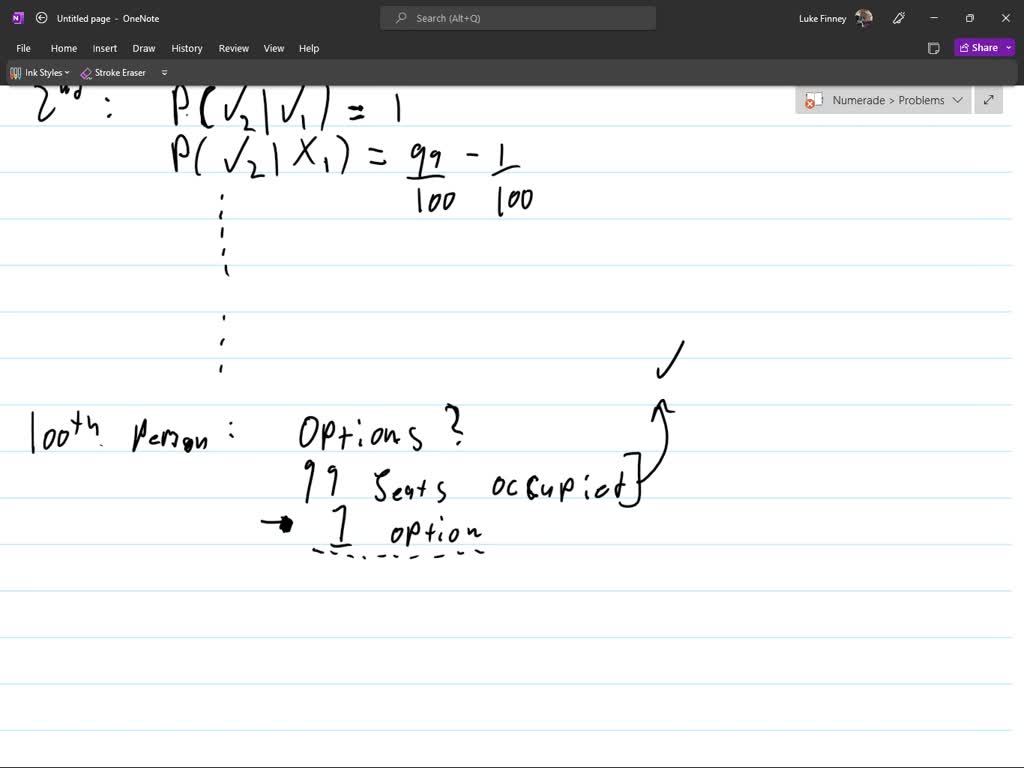 Untitled page - OneNote
Search (Alt+Q)
Luke Finney
File Home Insert Draw History Review View Help
Share
Ink Styles
Stroke Eraser
Numerade > Problems
2nd : P(√2|√1) = 1
P(√2|X1) = 99/100 - 1/100
100th Person : Options ?
99 Seats occupied]
1 option